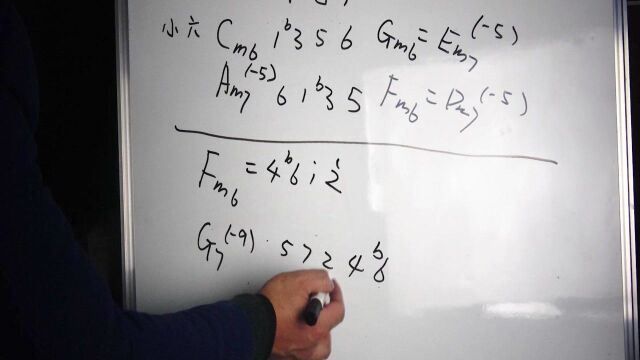 小六 Cm6 1 b3 5 6 Gm6 = Em7(-5)
Am7(-5) 6 1 b3 5 Fm6 = Dm7(-5)
Fm6 = 4 b6 i 2̇
G7(-9) 5 7 2 4 b6